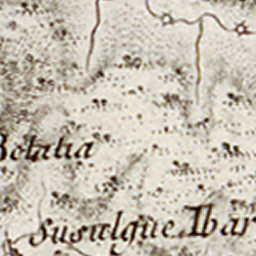 Betalia
Susulgue Ibar